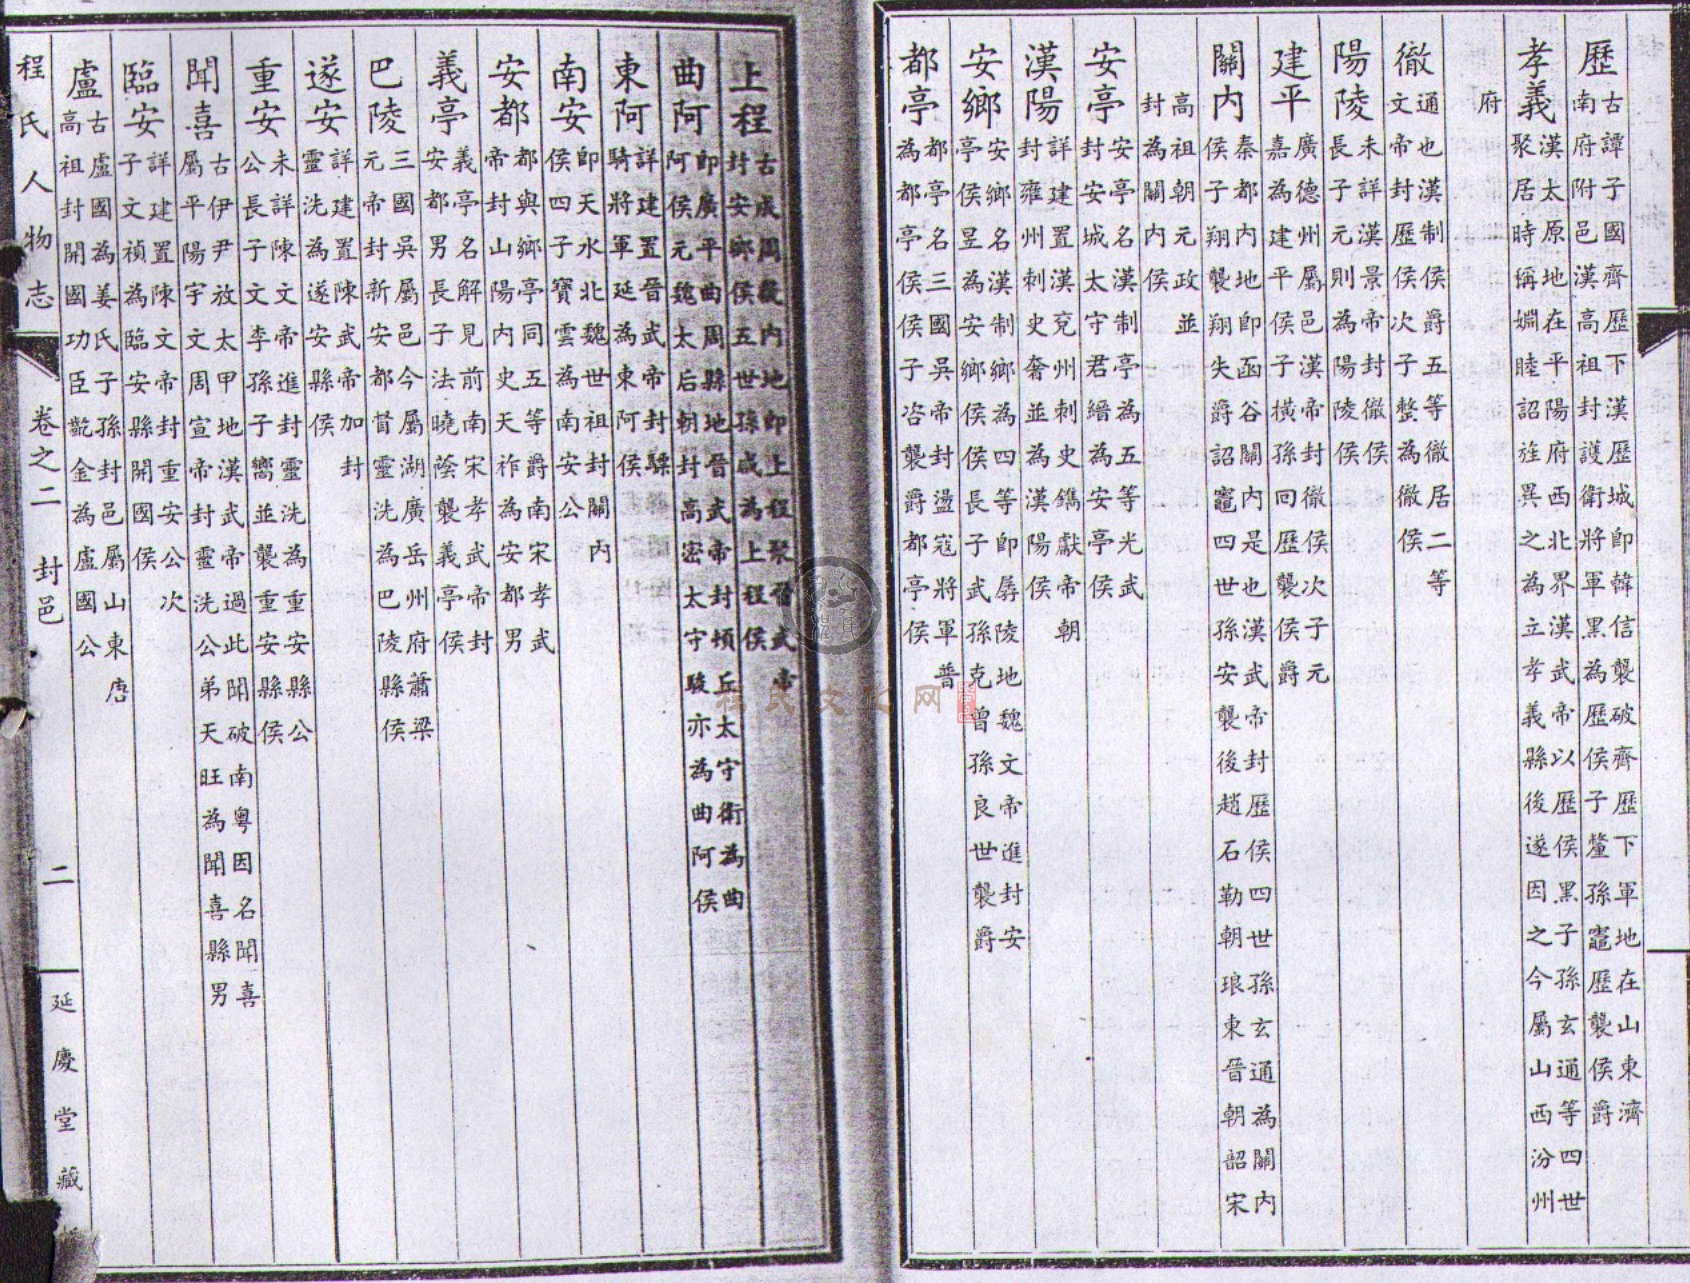 歷
古譚子國齊歷下漢歷城即韓信襲破齊歷下軍地在山東濟
南府附邑漢高祖封護衛將軍黑為歷侯子釐孫竈歷襲侯爵
孝義
漢太原地在平陽府西北界漢武帝以歷侯黑子孫玄通等四世
聚居時稱婣睦詔旌異之為立孝義縣後遂因之今屬山西汾州
府
徹
通也漢制侯爵五等徹居二等
文帝封歷侯次子整為徹侯
陽陵
未詳漢景帝封徹侯
長子元則為陽陵侯
建平
廣德州屬邑漢帝封徹侯次子元
嘉為建平侯子橫孫回歷襲侯爵
關內
秦都內地即函谷關內是也漢武帝封歷侯四世孫玄通為關內
侯子翔襲翔失爵詔竈四世孫安襲後趙石勒朝琅東晉朝韶宋
高祖朝元政並
封為關內侯
安亭
安亭名漢制亭為五等光武
封安城太守君縉為安亭侯
漢陽
詳建置漢兗州刺史鐫獻帝朝
封雍州刺史奢並為漢陽侯
安鄉
安鄉名漢制鄉為四等即孱陵地魏文帝進封安
亭侯昱為安鄉侯長子武孫克曾孫良世襲爵
都亭
都亭名三國吳帝封盪寇將軍普
為都亭侯子咨襲爵都亭侯
上程
古成周畿內地即上程聚晉武帝
封安鄉侯五世孫成為上程侯
曲阿
即廣平曲周縣地晉武帝封頓丘太守衛為曲
阿侯元魏太后朝封高密太守駿亦為曲阿侯
東阿
詳建置晉武帝封驃
騎將軍延為東阿侯
南安
即天水北魏世祖封關內
侯四子寶雲為南安公
安都
都與鄉亭同五等爵南宋孝武
帝封山陽內史天祚為安都男
義亭
義亭名解見前南宋孝武帝封
安都男長子法曉蔭襲義亭侯
巴陵
三國吳屬邑今屬湖廣岳州府蕭梁
元帝封新安都督靈洗為巴陵縣侯
遂安
詳建置陳武帝加封
靈洗為遂安縣侯
重安
未詳陳文帝進封靈洗為重安縣公
公長子文季孫子嚮並襲重安縣侯
聞喜
古伊尹放太甲地漢武帝過此聞破南粵因名聞喜
屬平陽宇文周宣帝封靈洗公弟天旺為聞喜縣男
臨安
詳建置陳文帝封重安公次
子文禎為臨安縣開國侯
盧
古盧國為姜氏子孫封邑屬山東唐
高祖封開國功臣齩金為盧國公
程氏人物志
卷之二
封邑
二
延慶堂藏
程氏文化网